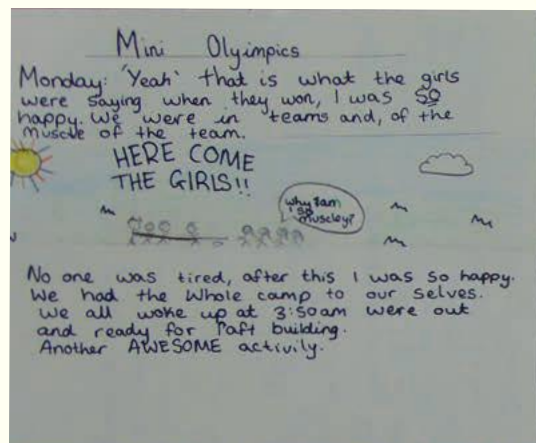 Mini Olyimpics
Monday: 'Yeah' that is what the girls
were saying when they won, I was SO
happy. We were in teams and, of the
muscle of the team.
HERE COME
THE GIRLS!!
why I am
so
muscley?
No one was tired, after this I was so happy.
We had the Whole camp to our selves.
We all woke up at 3:50am were out
and ready for raft building.
Another AWESOME activily.